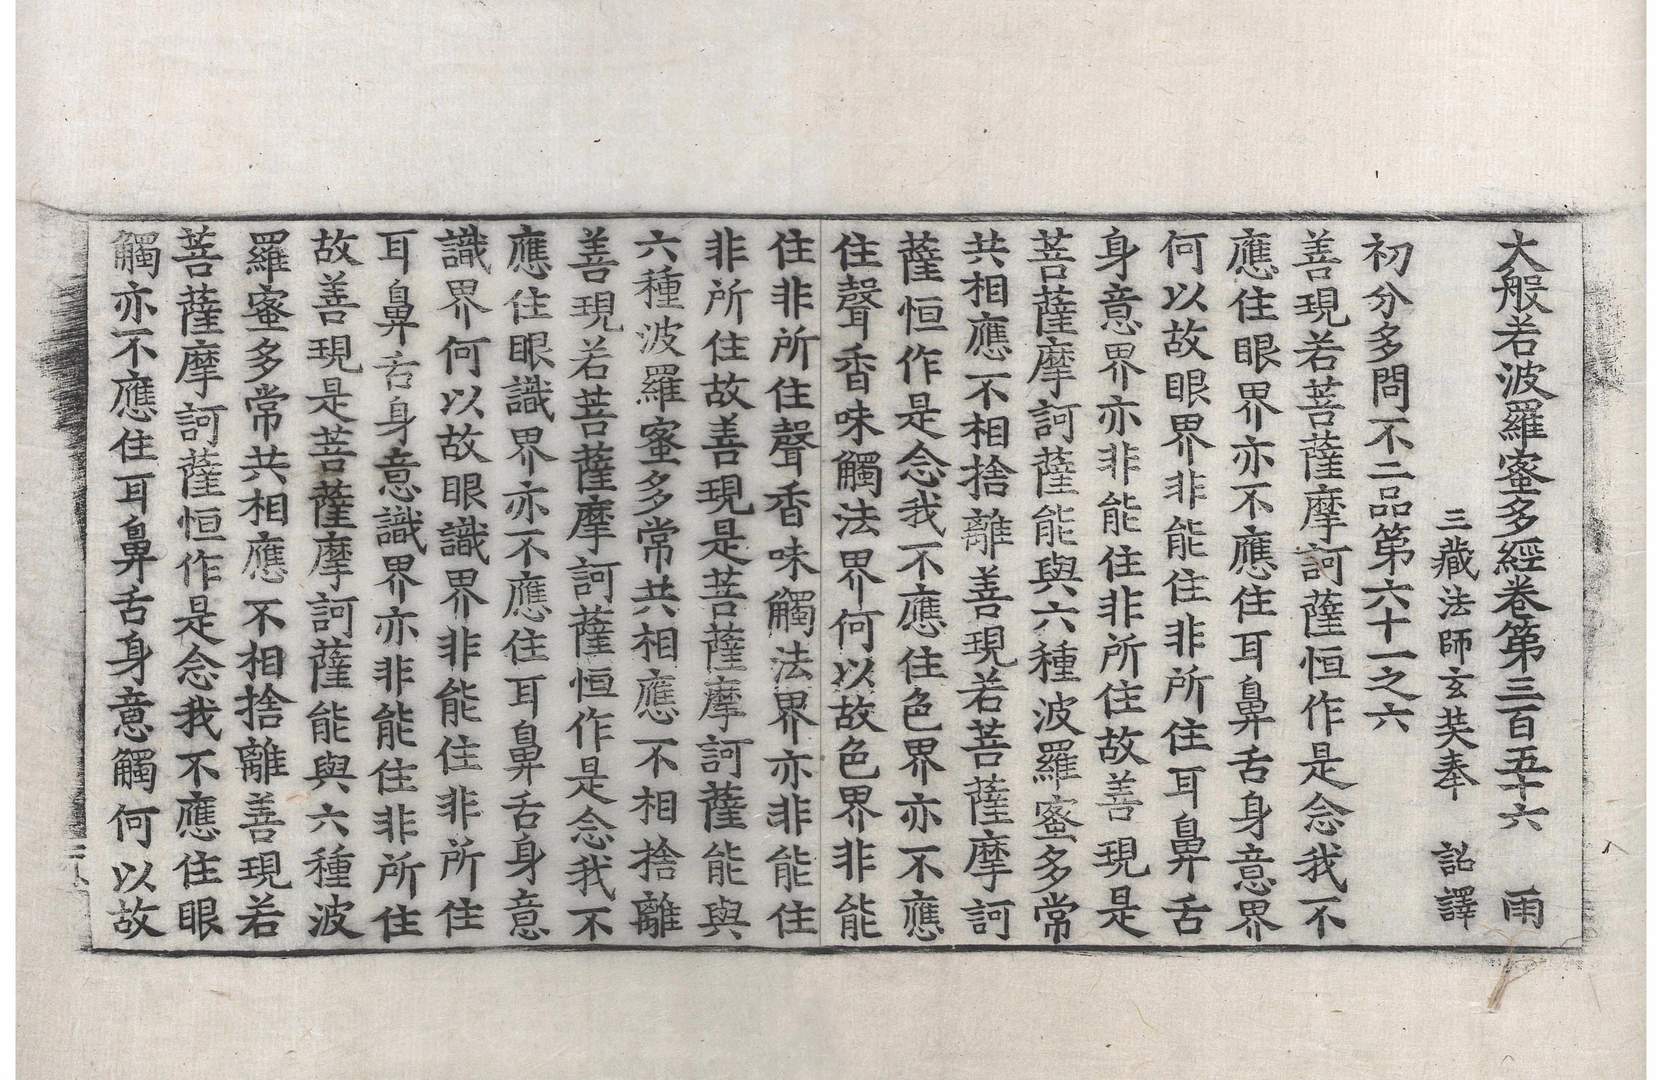 大般若波羅蜜多經卷第三百五十六　雨
三藏法師玄奘奉　詔譯
初分多問不二品第六十一之六
善現若菩薩摩訶薩恒作是念我不
應住眼界亦不應住耳鼻舌身意界
何以故眼界非能住非所住耳鼻舌
身意界亦非能住非所住故善現是
菩薩摩訶薩能與六種波羅蜜多常
共相應不相捨離善現若菩薩摩訶
薩恒作是念我不應住色界亦不應
住聲香味觸法界何以故色界非能
住非所住聲香味觸法界亦非能住
非所住故善現是菩薩摩訶薩能與
六種波羅蜜多常共相應不相捨離
善現若菩薩摩訶薩恒作是念我不
應住眼識界亦不應住耳鼻舌身意
識界何以故眼識界非能住非所住
耳鼻舌身意識界亦非能住非所住
故善現是菩薩摩訶薩能與六種波
羅蜜多常共相應不相捨離善現若
菩薩摩訶薩恒作是念我不應住眼
觸亦不應住耳鼻舌身意觸何以故